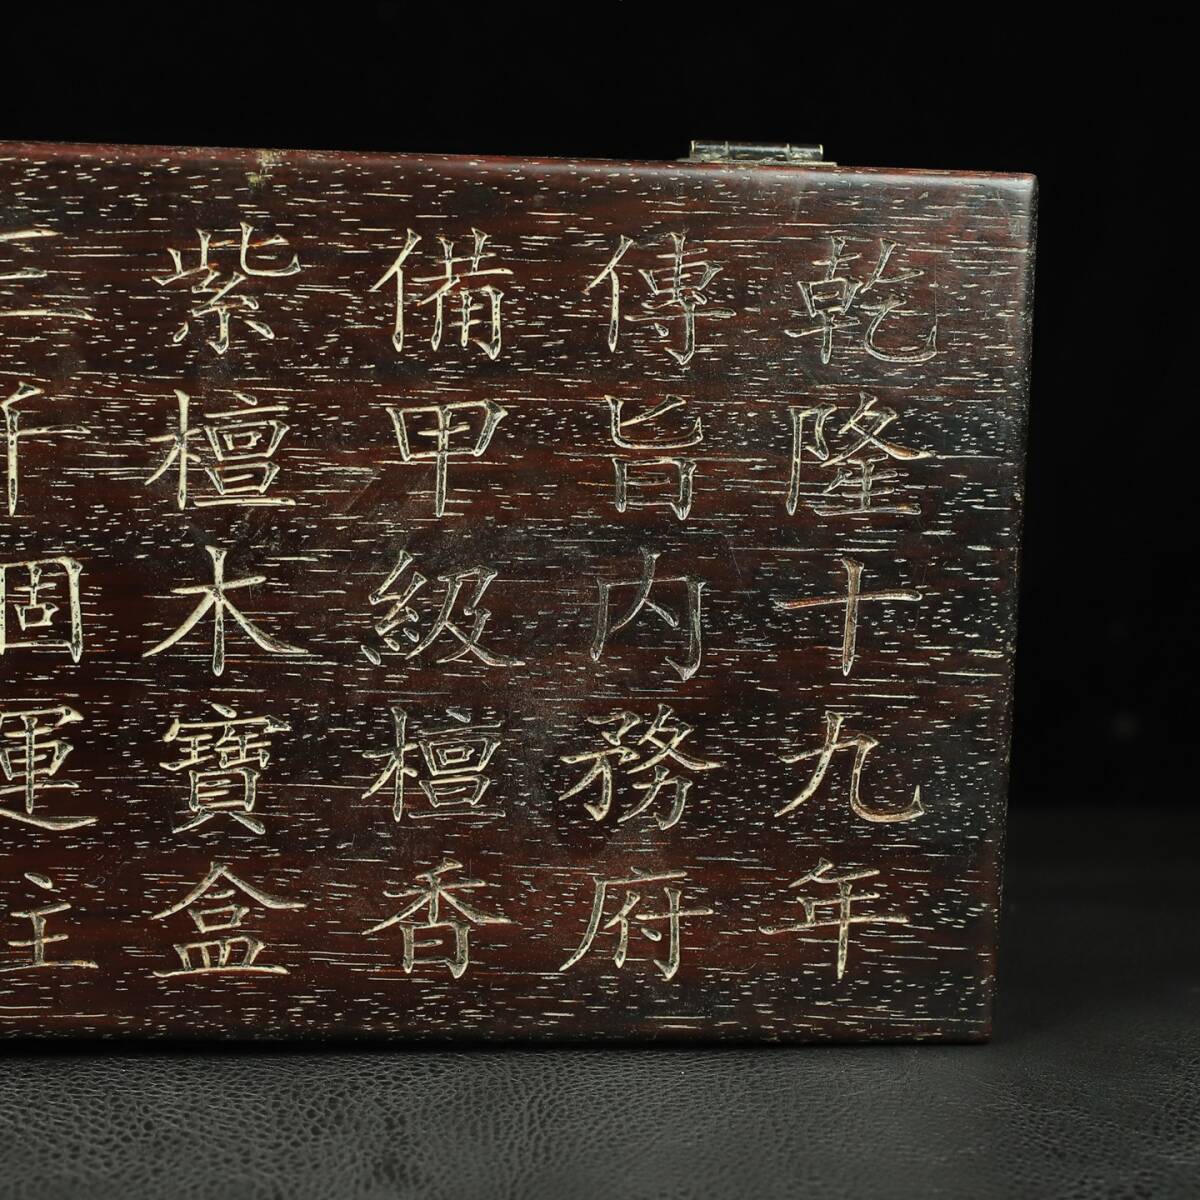 乾隆十九年
傳旨內務府
備甲級檀香
紫檀木寶盒
千個運往